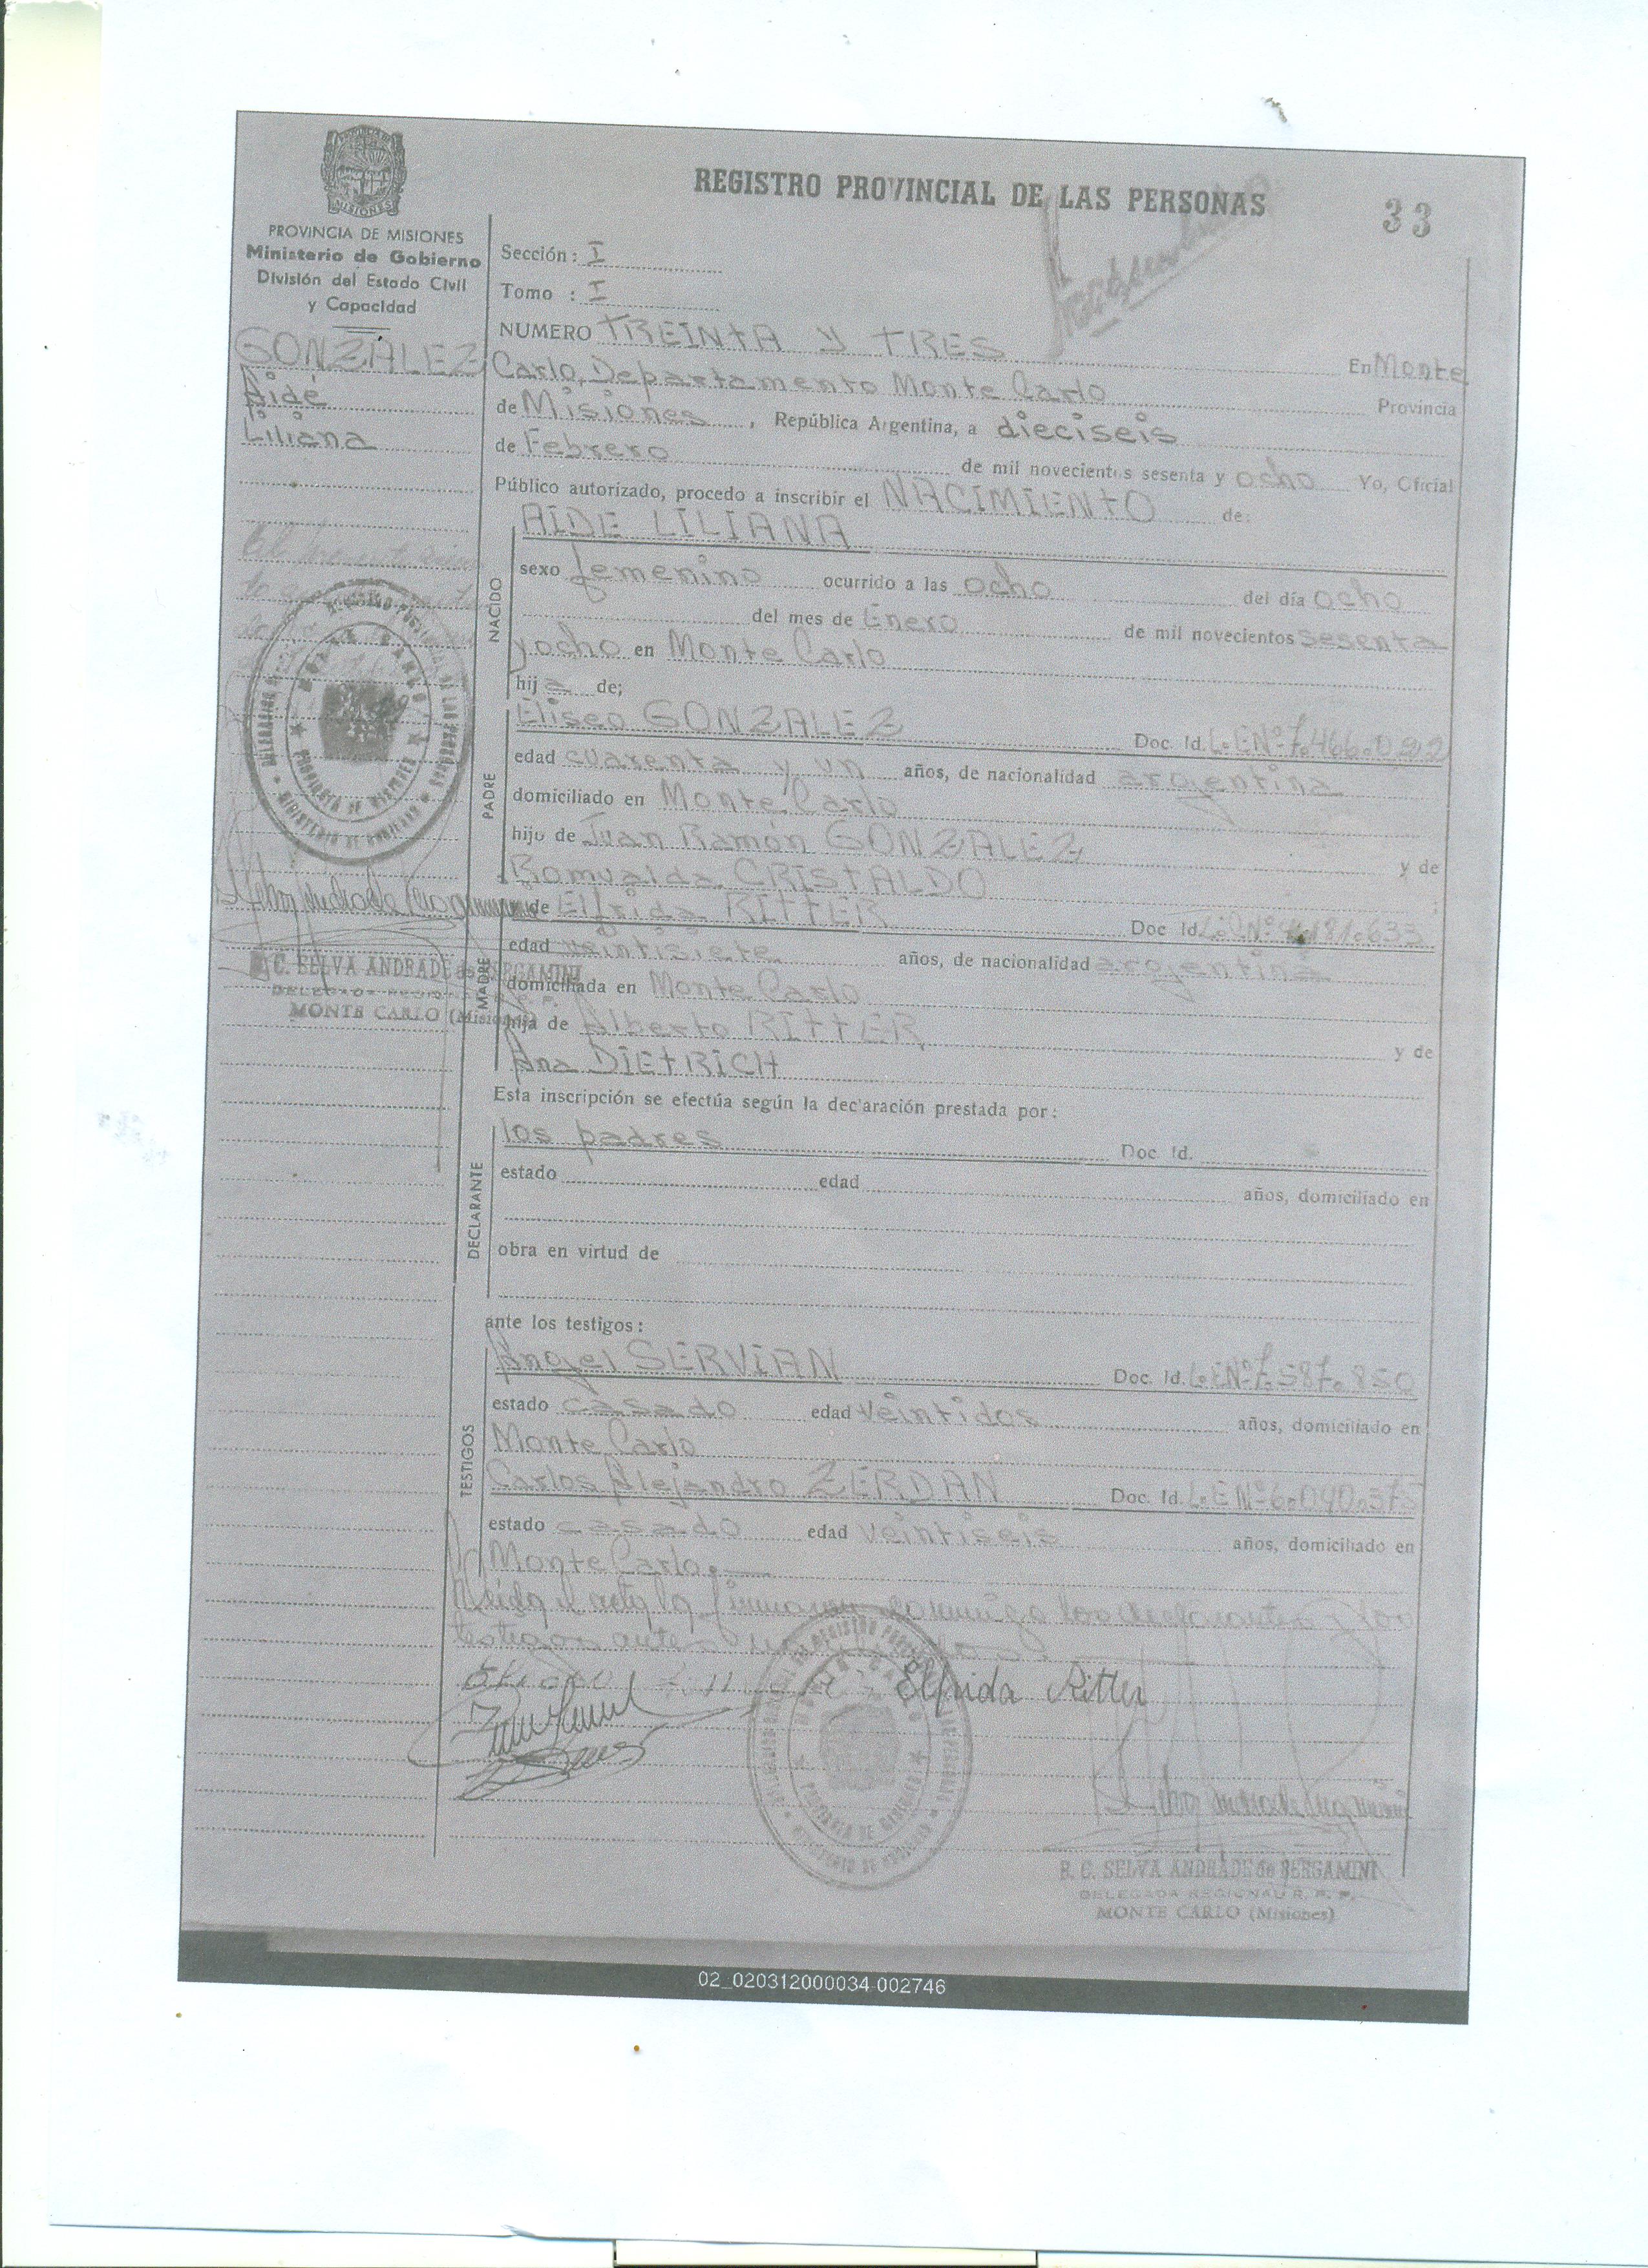 MISIONES
PROVINCIA DE MISIONES
Ministerio de Gobierno
División del Estado Civil
y Capacidad
GONZALEZ
Aidé
Liliana
REGISTRO PROVINCIAL DE LAS PERSONAS
33
Sección: I
Tomo : I
NUMERO TREINTA Y TRES En Monte
Carlo, Departamento Monte Carlo Provincia
de Misiones, República Argentina, a dieciseis
de Febrero de mil novecientos sesenta y ocho Yo, Oficial
Público autorizado, procedo a inscribir el NACIMIENTO de:
NACIDO
AIDE LILIANA
sexo femenino ocurrido a las ocho del día ocho
del mes de Enero de mil novecientos sesenta
y ocho en Monte Carlo
hija de;
PADRE
Eliseo GONZALEZ Doc. Id. L.E.Nº 7.466.0
edad cuarenta y un años, de nacionalidad argentina
domiciliado en Monte Carlo
hijo de Juan Ramón GONZALEZ y de
Romualda CRISTALDO
MADRE
de Elfrida RITTER Doc Id.
edad veintisiete años, de nacionalidad argentina
domiciliada en Monte Carlo
hija de Alberto RITTER y de
Ana DIETRICH
Esta inscripción se efectúa según la declaración prestada por:
DECLARANTE
los padres Doc. Id.
estado edad años, domiciliado en
obra en virtud de
ante los testigos:
TESTIGOS
Angel SERVIAN Doc. Id. L.E.Nº 7.587.850
estado casado edad veintidos años, domiciliado en
Monte Carlo
Carlos Alejandro ZERDAN Doc. Id. L.E Nº 6.040.575
estado casado edad veintiseis años, domiciliado en
Monte Carlo.
Leida el acta la firman conmigo los declarantes y los
testigos ante
Elfrida Ritter
C. SELVA ANDRADE de BERGAMINI
DELEGADA REGIONAL
MONTE CARLO (Misiones)
B. C. SELVA ANDRADE de BERGAMINI
DELEGADA REGIONAL R. P. P.
MONTE CARLO (Misiones)
02_020312000034-002746